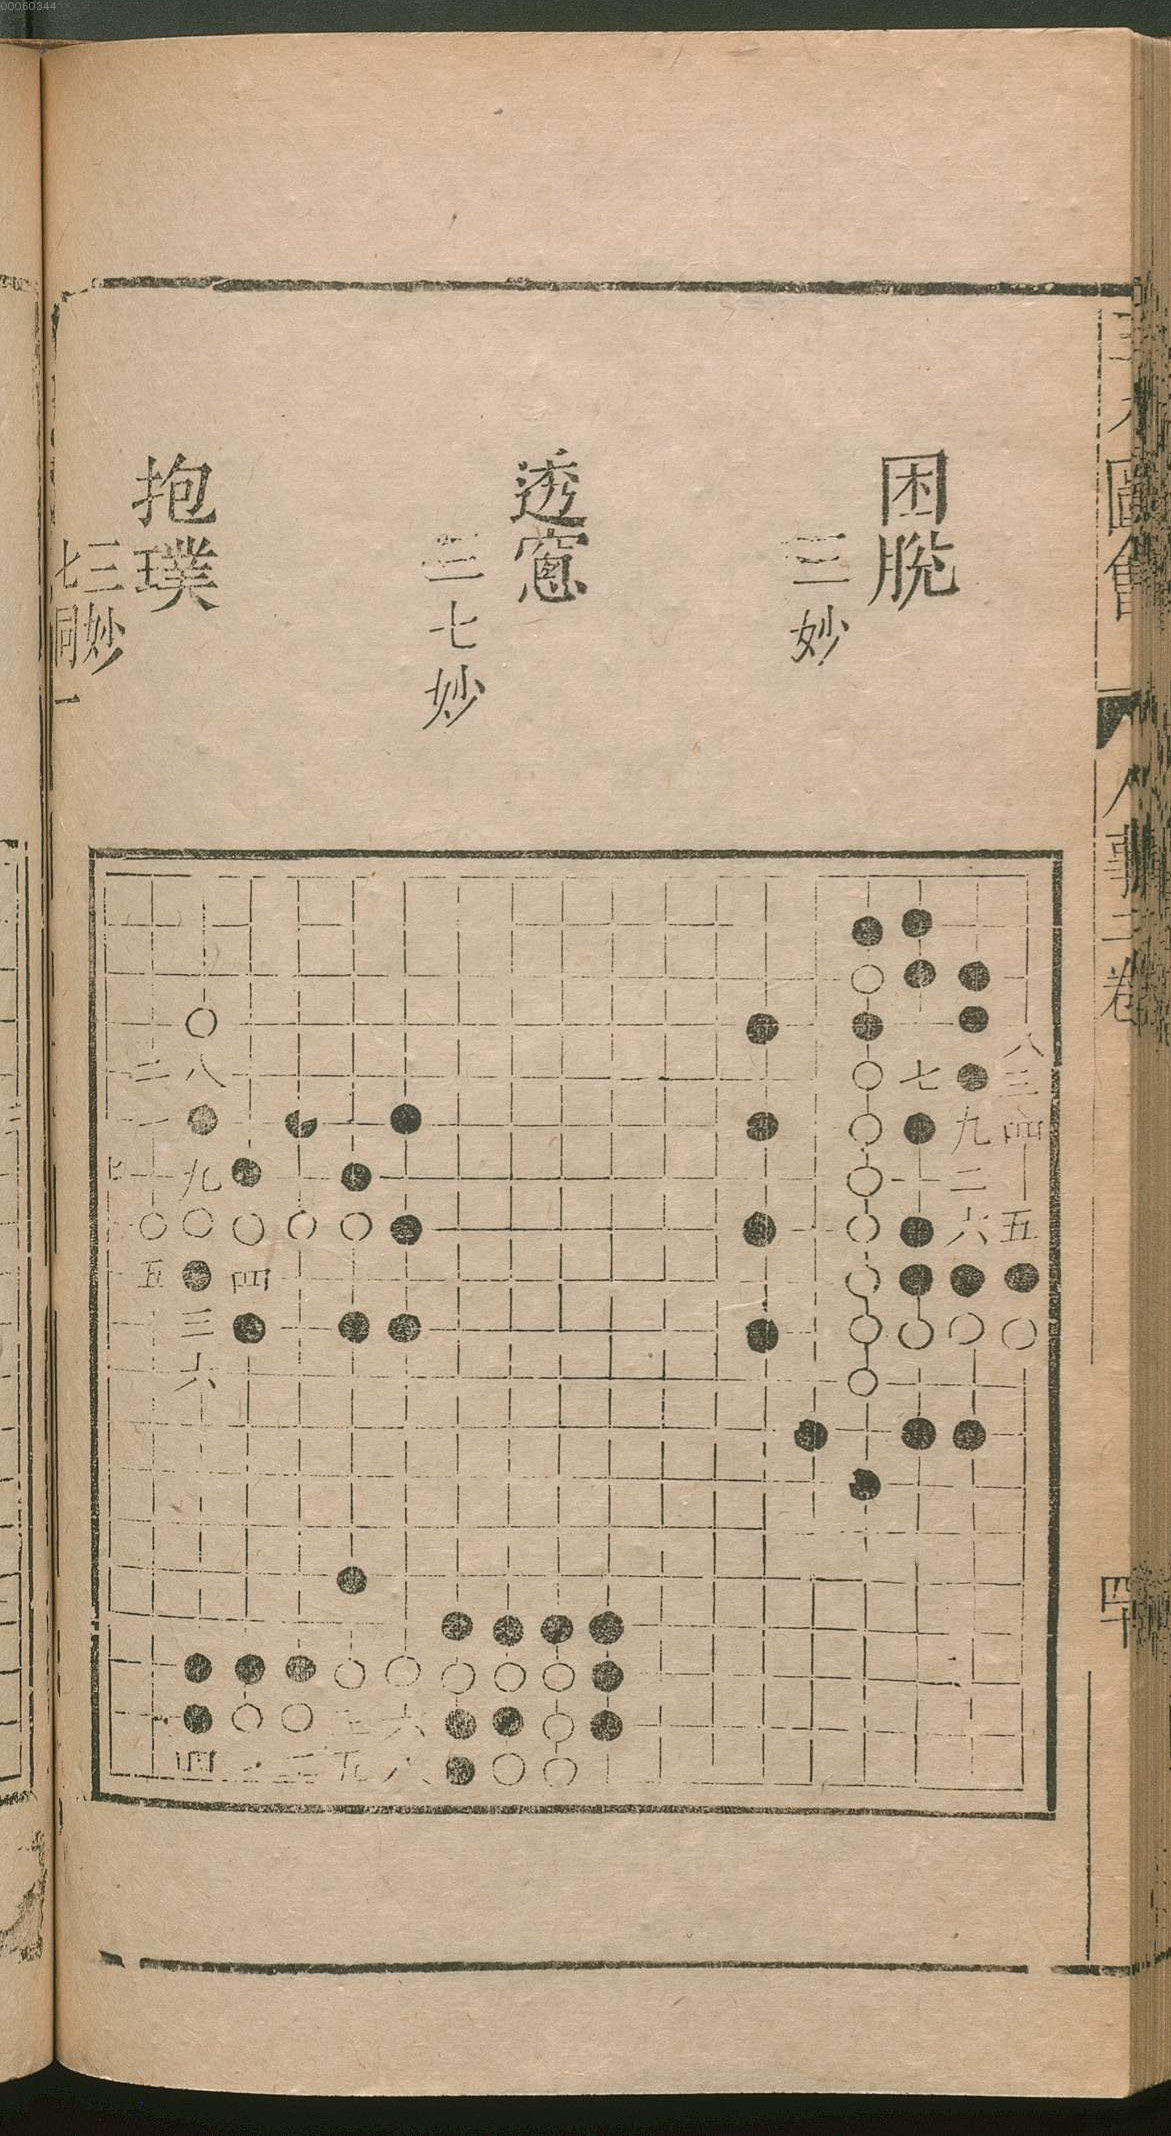 00060344
困脫
三妙
透窻
三七妙
抱璞
三妙
七同一
八
七 三
九 四
二
六 五
二 八
一
七 九
五 四
三
六
三 六
四 一 二 五 八